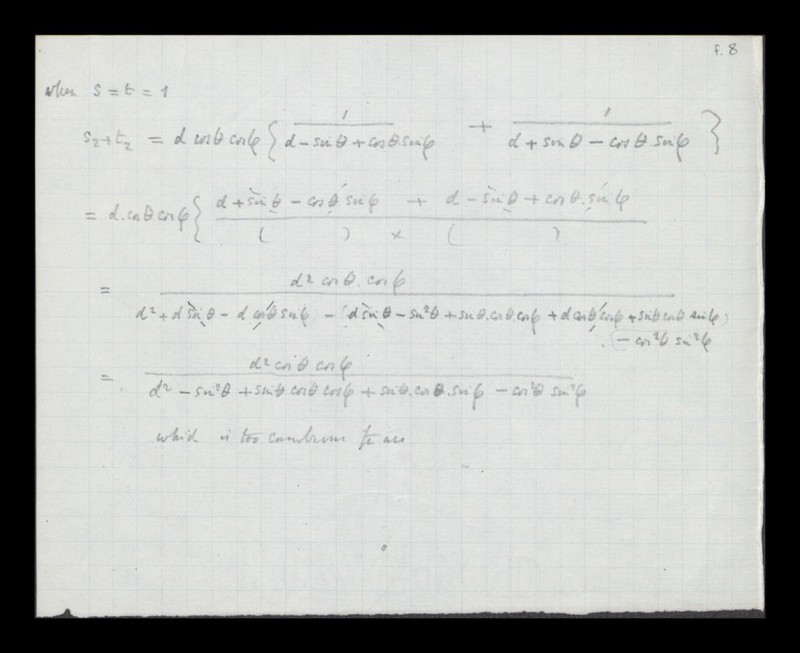 f. 8
when s = t = 1
s₂+t₂ = d cosθ cosφ { 1 / (d − sinθ + cosθ sinφ) + 1 / (d + sinθ − cosθ sinφ) }
= d.cosθ cosφ { (d + sinθ − cosθ sinφ + d − sinθ + cosθ.sinφ) / (( ) × ( ))
= d² cosθ.cosφ / (d² + d sinθ − d cosθ sinφ − (d sinθ − sin²θ + sinθ.cosθ cosφ + d cosθ cosφ + sinθ cosθ sinφ)
(− cos²θ sin²φ
= d² cosθ cosφ / (d² − sin²θ + sinθ cosθ cosφ + sinθ.cosθ.sinφ − cos²θ sin²φ)
which is too cumbrous for use